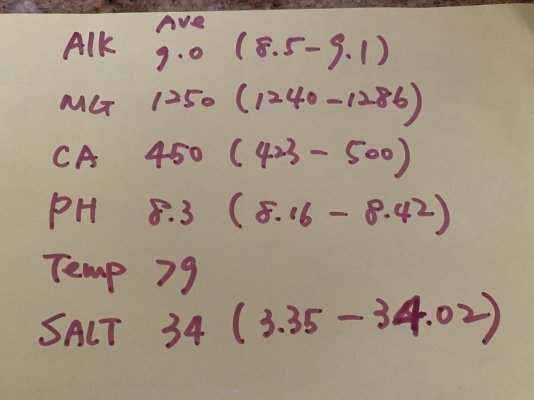 Ave
Alk 9.0 (8.5-9.1)
MG 1250 (1240-1286)
CA 450 (423 - 500)
PH 8.3 (8.16 - 8.42)
Temp 79
SALT 34 (3.35 - 34.02)